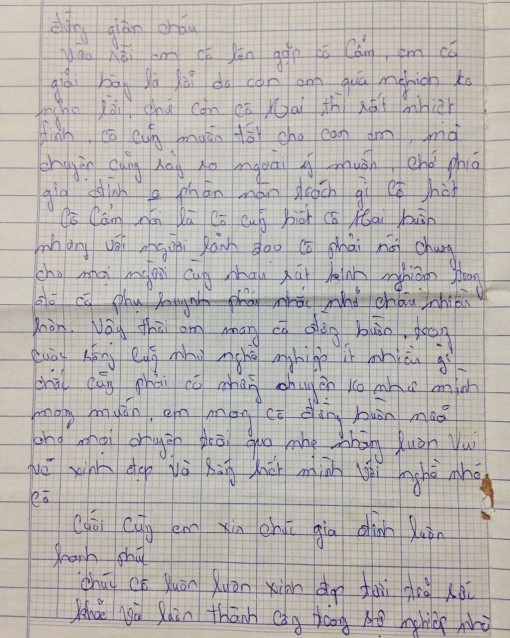 đừng giận cháu
Vừa rồi em có lên gặp cô Cẩm, em có
giải bày là lỗi do con em quá nghịch ko
nghe lời, chứ còn cô Mai thì rất nhiệt
tình, cô cũng muốn tốt cho con em, mà
chuyện cũng xảy ra ngoài ý muốn, chớ phía
gia đình o phàn nàn trách gì cô hết
Cô Cẩm nói là cô cũng biết cô Mai buồn
nhưng với người lãnh đạo cô phải nói chung
cho mọi người cùng nhau rút kinh nghiệm trong
đó có phụ huynh phải nhắc nhở cháu nhiều
hơn. Vậy thôi em mong cô đừng buồn, trong
cuộc sống cũng như nghề nghiệp ít nhiều gì
chắc cũng phải có những chuyện ko như mình
mong muốn, em mong cô đừng buồn nữa
cho mọi chuyện trôi qua nhẹ nhàng luôn vui
vẻ xinh đẹp và sống hết mình với nghề nhé
cô
Cuối cùng em xin chúc gia đình luôn
hạnh phúc
chúc cô luôn luôn xinh đẹp tươi trẻ sức
khoẻ và luôn thành công trong sự nghiệp nhé